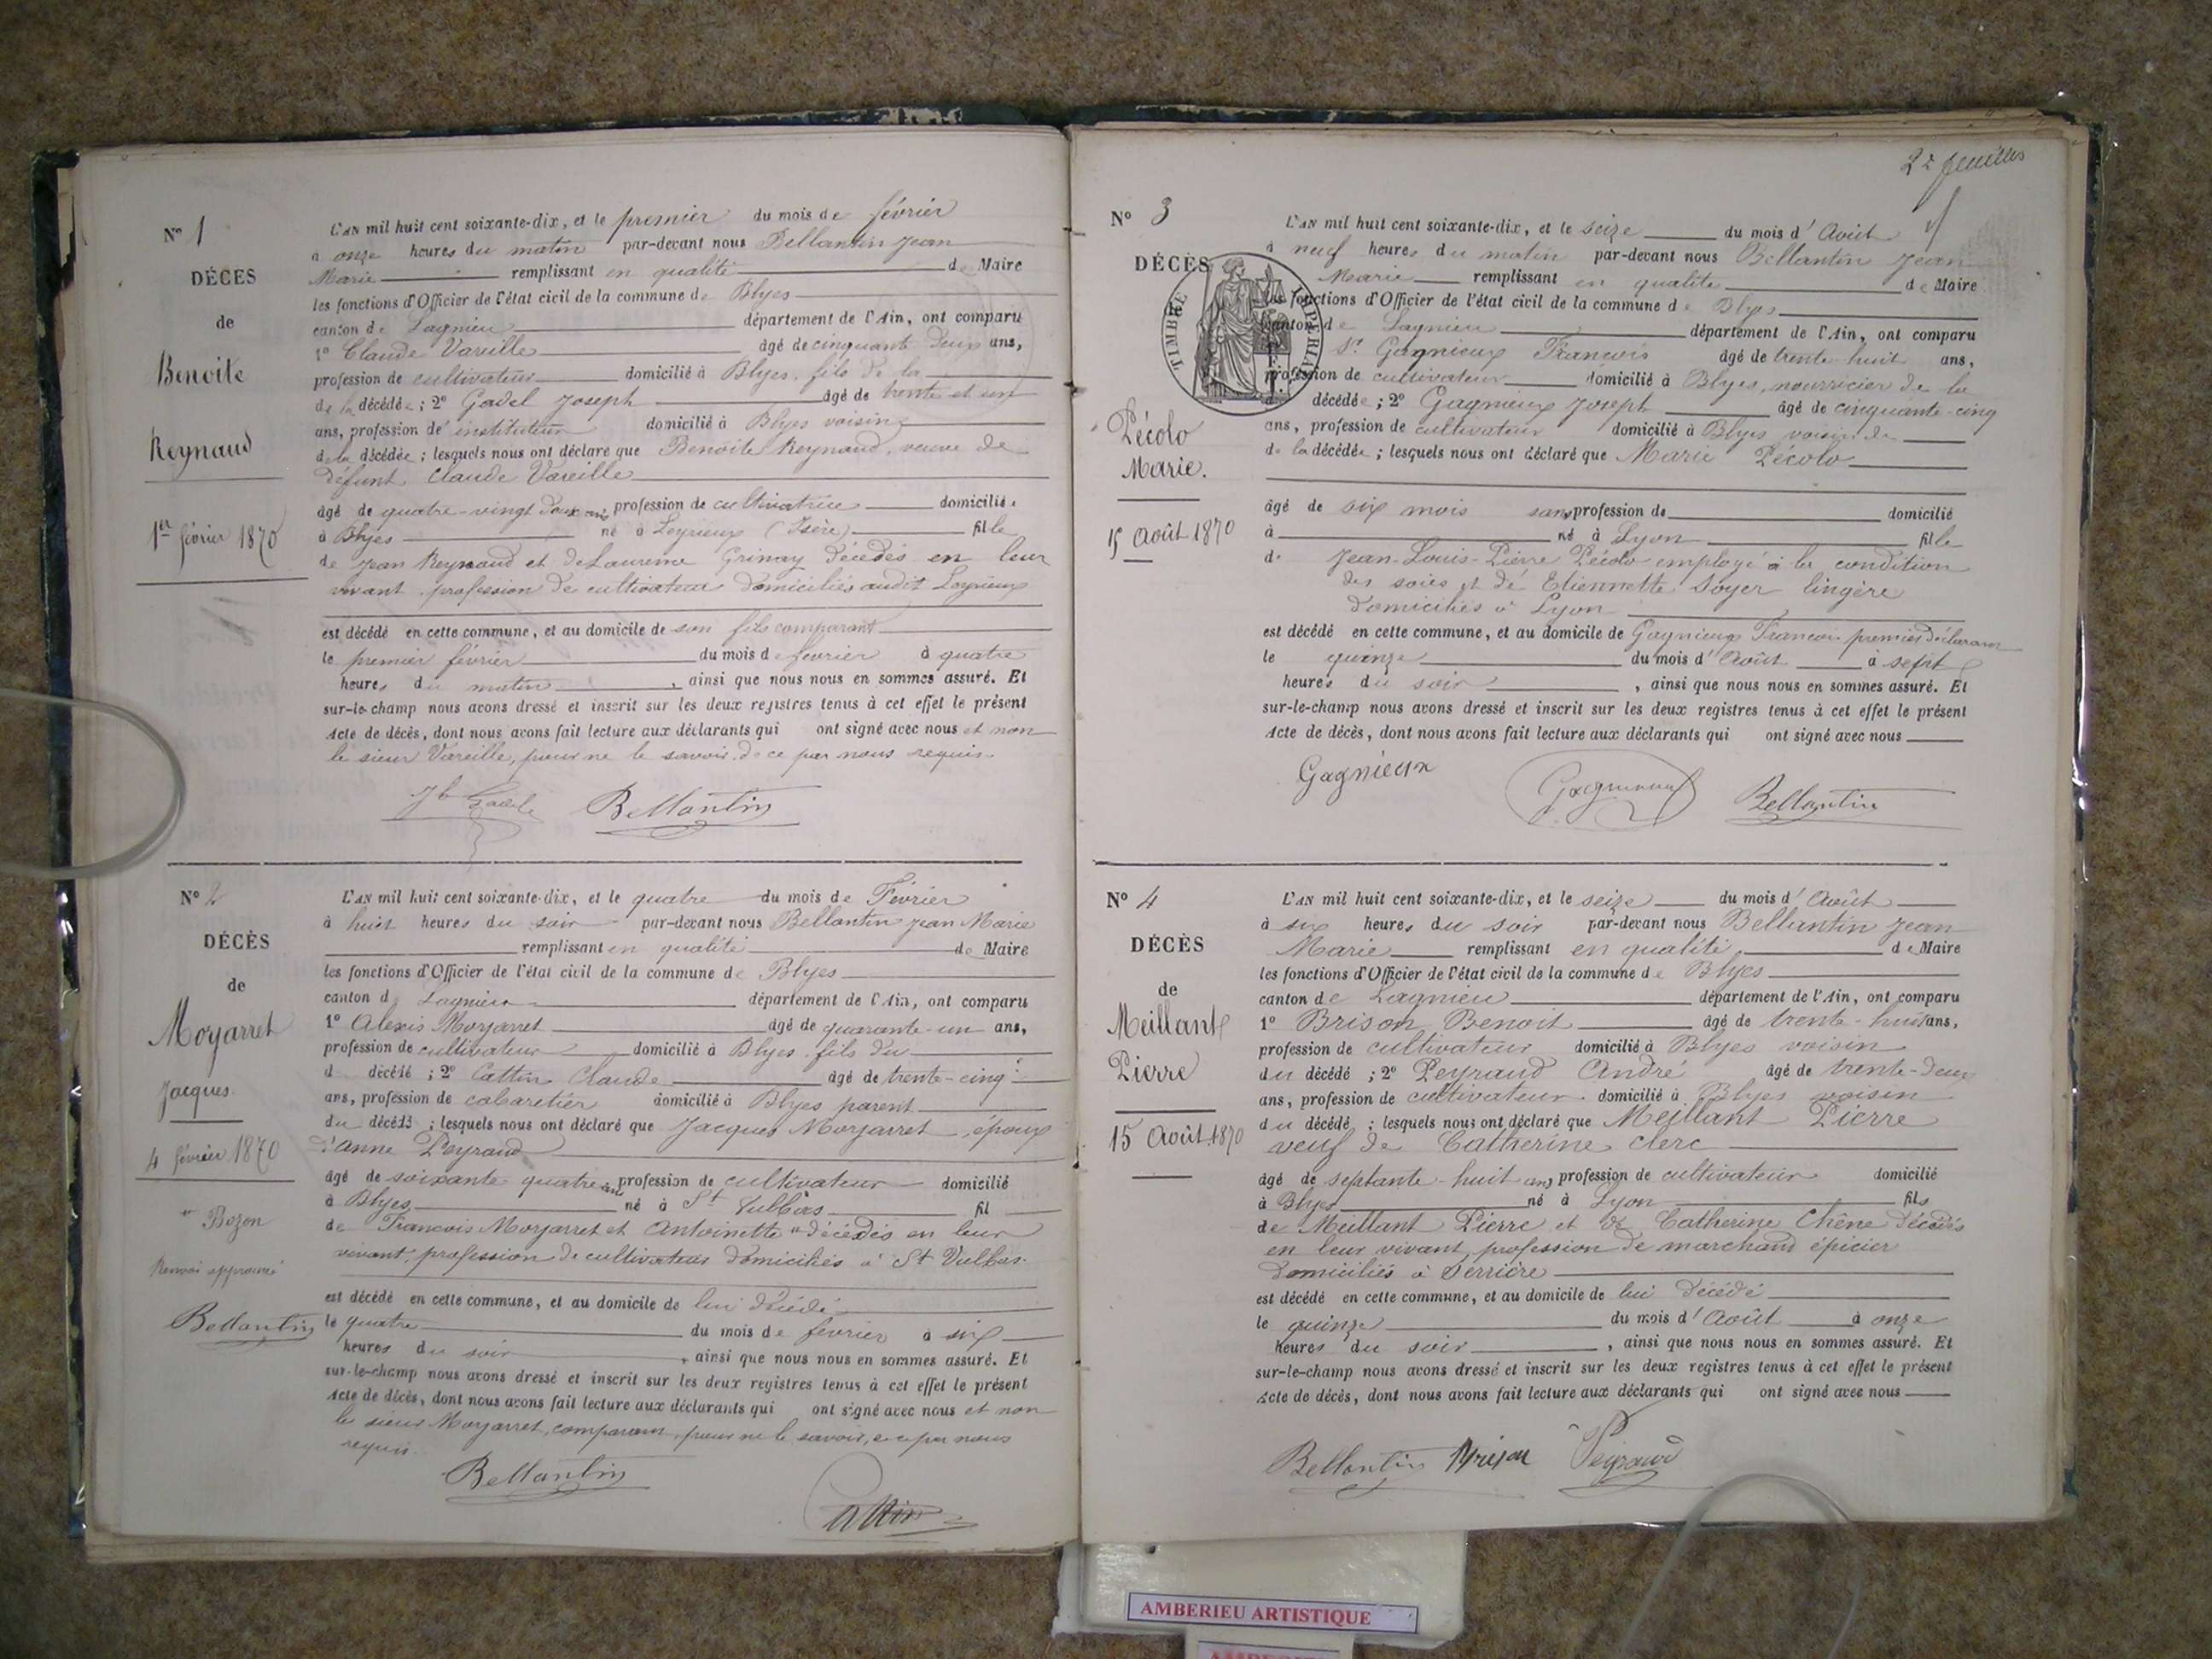 N° 1
DÉCÈS
de
Benoite
Reynaud
1er février 1870
L'AN mil huit cent soixante-dix, et le premier du mois de février
à onze heures du matin par-devant nous Bellantin Jean
Marie remplissant en qualité de Maire
les fonctions d'Officier de l'état civil de la commune de Blyes
canton de Lagnieu département de l'Ain, ont comparu
1° Claude Vareille âgé de cinquante deux ans,
profession de cultivateur domicilié à Blyes, fils de la
de la décédée ; 2° Gadel Joseph âgé de trente et un
ans, profession de instituteur domicilié à Blyes voisin
de la décédée ; lesquels nous ont déclaré que Benoite Reynaud, veuve de
défunt Claude Vareille
âgé de quatre-vingt deux ans profession de cultivatrice domiciliée
à Blyes né à Leyrieux (Isère) fille
de Jean Reynaud et de Laurence Grinay décédés en leur
vivant profession de cultivateur domiciliés audit Leyrieux
est décédé en cette commune, et au domicile de son fils comparant
le premier février du mois de février à quatre
heures du matin, ainsi que nous nous en sommes assuré. Et
sur-le-champ nous avons dressé et inscrit sur les deux registres tenus à cet effet le présent
Acte de décès, dont nous avons fait lecture aux déclarants qui ont signé avec nous et non
le sieur Vareille, pour ne le savoir, de ce par nous requis
Bellantin
N° 2
DÉCÈS
de
Moyarret
Jacques
4 février 1870
Bozon
Renvoi approuvé
Bellantin
L'AN mil huit cent soixante-dix, et le quatre du mois de Février
à huit heures du soir par-devant nous Bellantin Jean Marie
remplissant en qualité de Maire
les fonctions d'Officier de l'état civil de la commune de Blyes
canton de Lagnieu département de l'Ain, ont comparu
1° Alexis Moyarret âgé de quarante-un ans,
profession de cultivateur domicilié à Blyes, fils du
d décédé ; 2° Cattin Claude âgé de trente-cinq
ans, profession de cabaretier domicilié à Blyes parent
du décédé ; lesquels nous ont déclaré que Jacques Moyarret, époux
d'anne Peyraud
âgé de soixante quatre ans profession de cultivateur domicilié
à Blyes né à St Vulbas fil
de Francois Moyarret et Antoinette décédés en leur
vivant, profession de cultivateurs domiciliés à St Vulbas.
est décédé en cette commune, et au domicile de lui décédé
le quatre du mois de février à six
heures du soir, ainsi que nous nous en sommes assuré. Et
sur-le-champ nous avons dressé et inscrit sur les deux registres tenus à cet effet le présent
Acte de décès, dont nous avons fait lecture aux déclarants qui ont signé avec nous et non
le sieur Moyarret, comparant, pour ne le savoir, de ce par nous
requis.
Bellantin
Cattin
2e feuilles
N° 3
DÉCÈS
TIMBRE IMPÉRIAL
Pécolo
Marie.
15 Août 1870
L'AN mil huit cent soixante-dix, et le seize du mois d'Août
à neuf heures du matin par-devant nous Bellantin Jean
Marie remplissant en qualité de Maire
les fonctions d'Officier de l'état civil de la commune de Blyes
canton de Lagnieu département de l'Ain, ont comparu
Gagnieux Francois âgé de trente huit ans,
profession de cultivateur domicilié à Blyes, nourricier de la
décédée ; 2° Gagnieux Joseph âgé de cinquante-cinq
ans, profession de cultivateur domicilié à Blyes voisin de
de la décédée ; lesquels nous ont déclaré que Marie Pécolo
âgé de six mois sans profession de domicilié
à né à Lyon fille
de Jean-Louis-Pierre Pécolo employé à la condition
des soies et de Etiennette Soyer lingère
domiciliés à Lyon
est décédé en cette commune, et au domicile de Gagnieux Francois premier déclarant
le quinze du mois d'Août à sept
heures du soir, ainsi que nous nous en sommes assuré. Et
sur-le-champ nous avons dressé et inscrit sur les deux registres tenus à cet effet le présent
Acte de décès, dont nous avons fait lecture aux déclarants qui ont signé avec nous
Gagnieux Bellantin
N° 4
DÉCÈS
de
Meillant
Pierre
15 Août 1870
L'AN mil huit cent soixante-dix, et le seize du mois d'Août
à six heures du soir par-devant nous Bellantin Jean
Marie remplissant en qualité de Maire
les fonctions d'Officier de l'état civil de la commune de Blyes
canton de Lagnieu département de l'Ain, ont comparu
1° Brison Benoit âgé de trente-huit ans,
profession de cultivateur domicilié à Blyes voisin
du décédé ; 2° Peyraud André âgé de trente-deux
ans, profession de cultivateur domicilié à Blyes voisin
du décédé ; lesquels nous ont déclaré que Meillant Pierre
veuf de Catherine Clerc
âgé de septante-huit ans profession de cultivateur domicilié
à Blyes né à Lyon fils
de Meillant Pierre et de Catherine Chêne décédés
en leur vivant, profession de marchand épicier
domiciliés à Serrière
est décédé en cette commune, et au domicile de lui décédé
le quinze du mois d'Août à onze
heures du soir, ainsi que nous nous en sommes assuré. Et
sur-le-champ nous avons dressé et inscrit sur les deux registres tenus à cet effet le présent
Acte de décès, dont nous avons fait lecture aux déclarants qui ont signé avec nous
Bellantin Brison Peyraud
AMBERIEU ARTISTIQUE